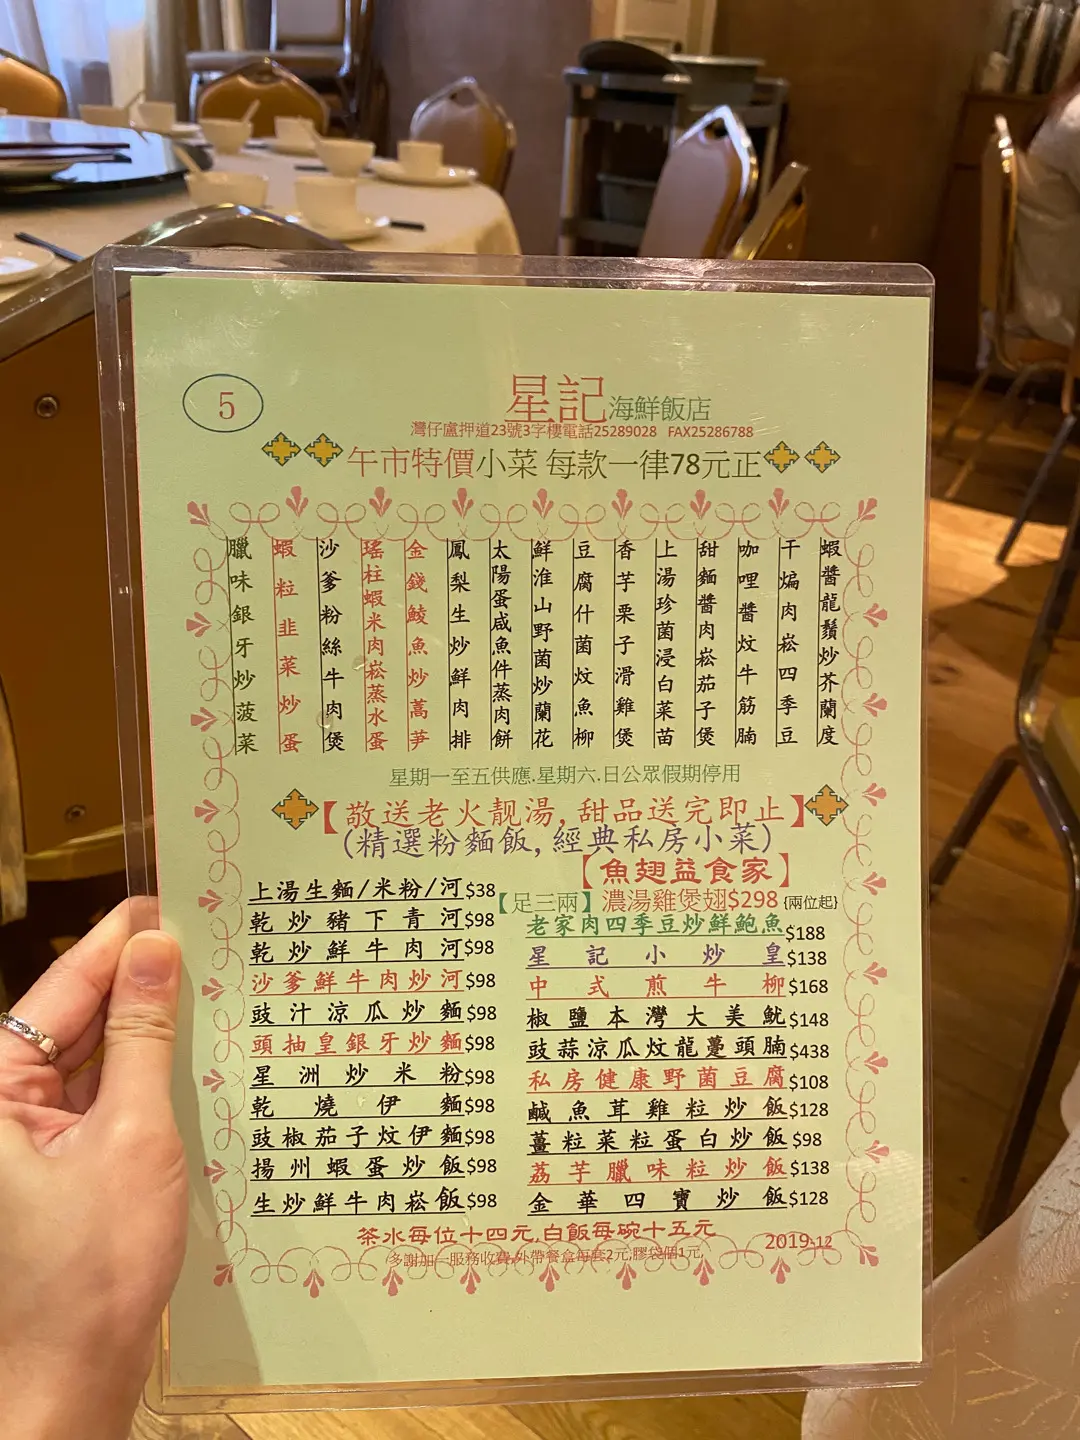 5
星記海鮮飯店
灣仔盧押道23號3字樓電話25289028 FAX25286788
午市特價小菜 每款一律78元正
蝦醬龍鬚炒芥蘭度
干煸肉崧四季豆
咖哩醬炆牛筋腩
甜麵醬肉崧茄子煲
上湯珍菌浸白菜苗
香芋栗子滑雞煲
豆腐什菌炆魚柳
鮮淮山野菌炒蘭花
太陽蛋咸魚件蒸肉餅
鳳梨生炒鮮肉排
金錢鯪魚炒萵笋
瑤柱蝦米肉崧蒸水蛋
沙爹粉絲牛肉煲
蝦粒韭菜炒蛋
臘味銀牙炒菠菜
星期一至五供應.星期六.日公眾假期停用
【敬送老火靚湯,甜品送完即止】
(精選粉麵飯,經典私房小菜)
上湯生麵/米粉/河$38
乾炒豬下青河$98
乾炒鮮牛肉河$98
沙爹鮮牛肉炒河$98
豉汁涼瓜炒麵$98
頭抽皇銀牙炒麵$98
星洲炒米粉$98
乾燒伊麵$98
豉椒茄子炆伊麵$98
揚州蝦蛋炒飯$98
生炒鮮牛肉崧飯$98
【魚翅益食家】
【足三兩】濃湯雞煲翅$298 {兩位起}
老家肉四季豆炒鮮鮑魚$188
星記小炒皇$138
中式煎牛柳$168
椒鹽本灣大美魷$148
豉蒜涼瓜炆龍躉頭腩$438
私房健康野菌豆腐$108
鹹魚茸雞粒炒飯$128
薑粒菜粒蛋白炒飯$98
荔芋臘味粒炒飯$138
金華四寶炒飯$128
茶水每位十四元,白飯每碗十五元
多謝加一服務收費,外帶餐盒每套2元,膠袋個1元,
2019-12